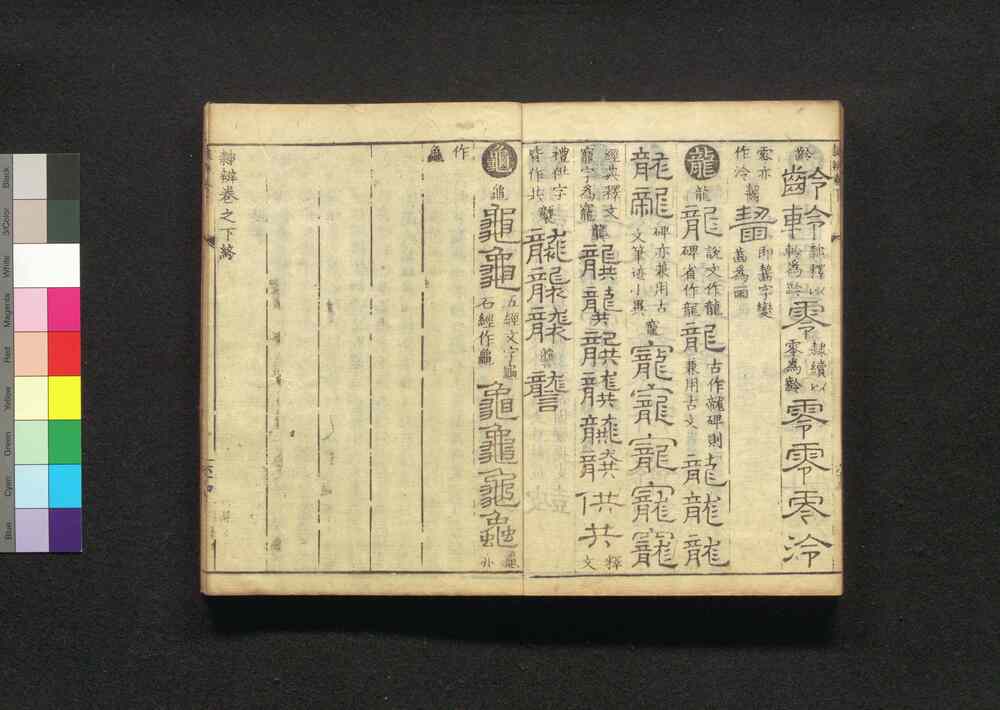 齡 齡 軨 隸釋以軨為齡 零 隸續以零為齡 零 零 零 泠
零亦作泠 齧 齧 即齧字變齒為
龍 龍 龍 說文作龍碑省作龍 龍 古作龍碑則兼用古文 龍 龍 龍
龍 龍 碑亦兼用古文筆迹小異 寵 寵 寵 寵 寵 寵
經典釋文寵字為寵 龔 龔 龔 龔 龔 龔 龔 供 共 釋文
禮供字皆作共 襲 襲 襲 襲 讋 讋
龜 龜 龜 龜 五經文字 石經作龜 龜 龜 龜 龜
作龜
隸辨卷之下終
Black
3/Color
White
Magenta
Red
Yellow
Green
Cyan
Blue